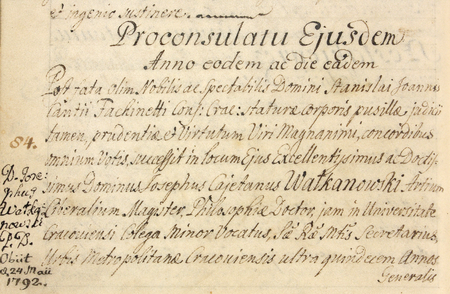 et ingenio sustinere.
Proconsulatu Ejusdem
Anno eodem ac die eadem
Post fata olim Nobilis ac Spectabilis Domini Stanislai Joannis
Cantii Fachinetti Cons: Crac: staturæ corporis pusillæ, judicii
tamen, prudentiæ et Virtutum Viri Magnanimi, concordibus
omnium Votis, successit in locum Ejus Excellentissimus ac Doctis
simus Dominus Josephus Cajetanus Watkanowski Artium
Liberalium Magister, Philosophiæ Doctor, jam in Universitate
Cracoviensi Collega Minor Vocatus, Sæ Ræ Mtis Secretarius,
Urbis Metropolitanæ Cracoviensis ultra quindecem Annos
Generalis
84.
D. Jose:
phus
Watka
nowski
Obiit
d. 24 Maii
1792.